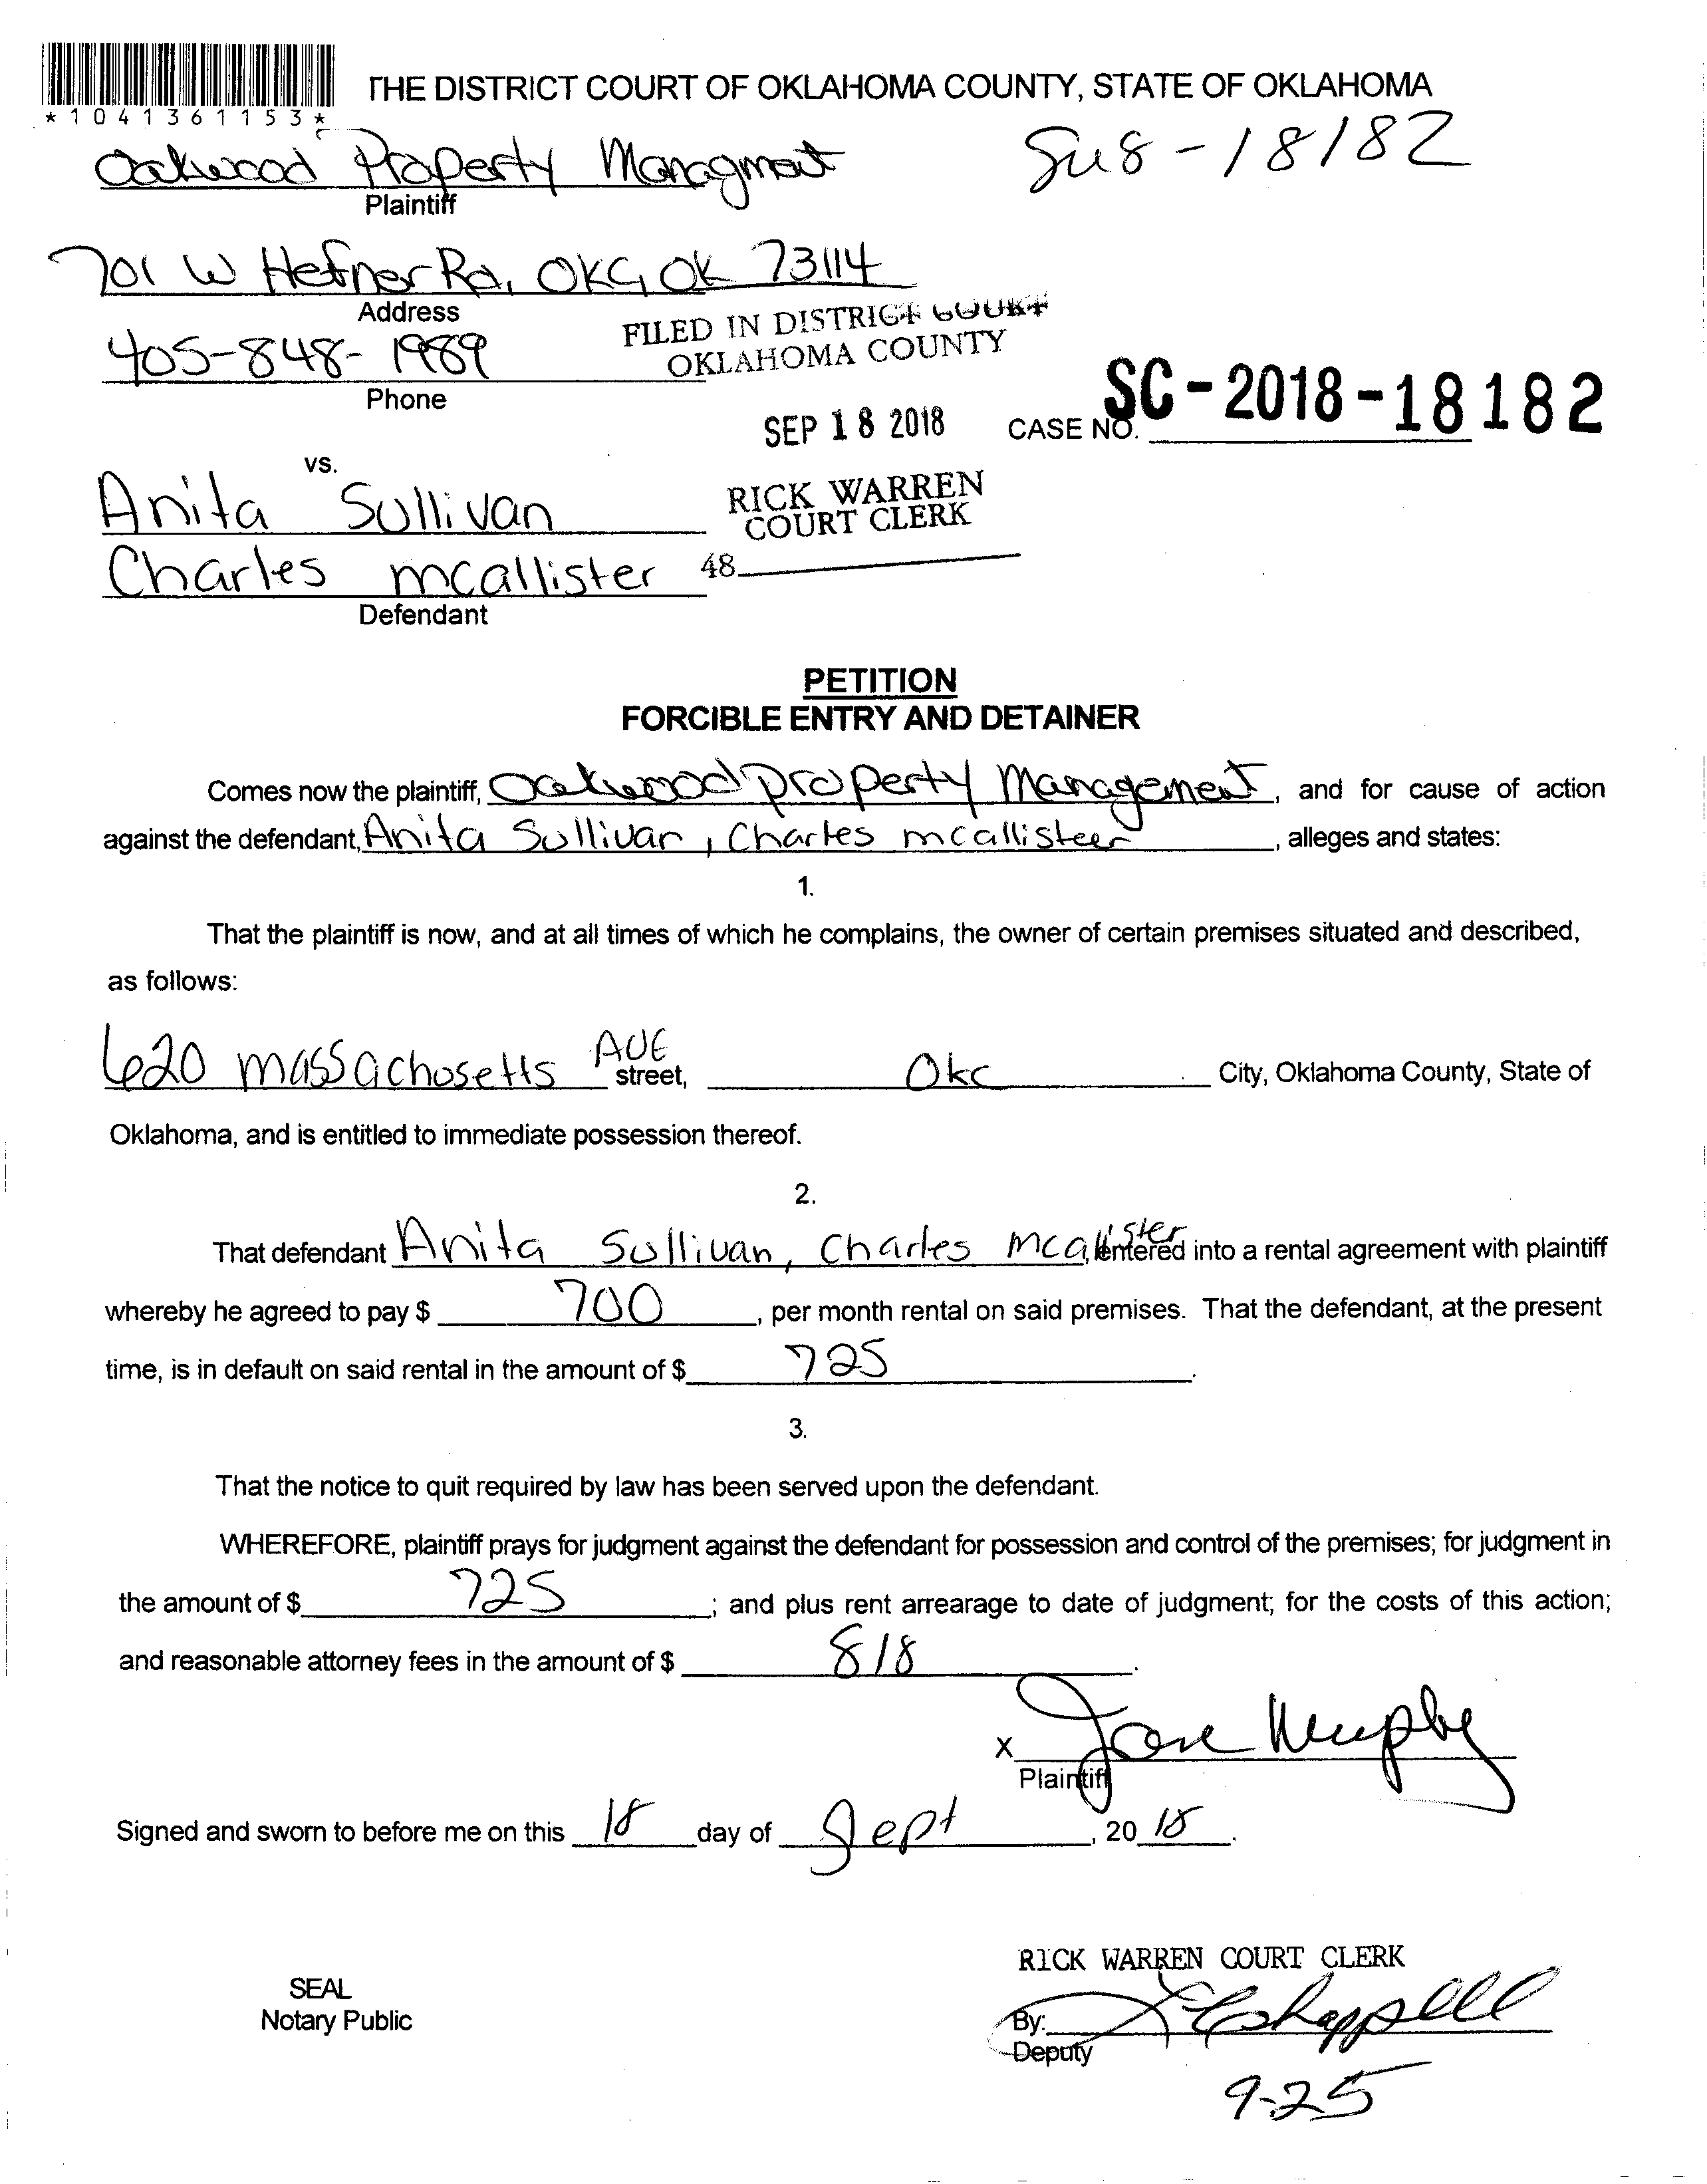 *1041361153*
THE DISTRICT COURT OF OKLAHOMA COUNTY, STATE OF OKLAHOMA
Oakwood Property Managment
Plaintiff
701 W Hefner Rd, OKC, OK 73114
Address
405-848-1989
Phone
FILED IN DISTRICT COURT
OKLAHOMA COUNTY
SEP 18 2018
CASE NO. SC-2018-18182
vs.
Anita Sullivan
RICK WARREN
COURT CLERK
Charles mcallister
48
Defendant
PETITION
FORCIBLE ENTRY AND DETAINER
Comes now the plaintiff, Oakwood property Management, and for cause of action
against the defendant, Anita Sullivan, Charles mcallisteer, alleges and states:
1.
That the plaintiff is now, and at all times of which he complains, the owner of certain premises situated and described,
as follows:
620 massachusetts AVE street, Okc City, Oklahoma County, State of
Oklahoma, and is entitled to immediate possession thereof.
2.
That defendant Anita Sullivan, Charles mcallister entered into a rental agreement with plaintiff
whereby he agreed to pay $ 700, per month rental on said premises. That the defendant, at the present
time, is in default on said rental in the amount of $ 725.
3.
That the notice to quit required by law has been served upon the defendant.
WHEREFORE, plaintiff prays for judgment against the defendant for possession and control of the premises; for judgment in
the amount of $ 725; and plus rent arrearage to date of judgment; for the costs of this action;
and reasonable attorney fees in the amount of $ 818.
x Murphy
Plaintiff
Signed and sworn to before me on this 18 day of Sept, 20 18.
RICK WARREN COURT CLERK
SEAL
Notary Public
By:
Deputy
9-25